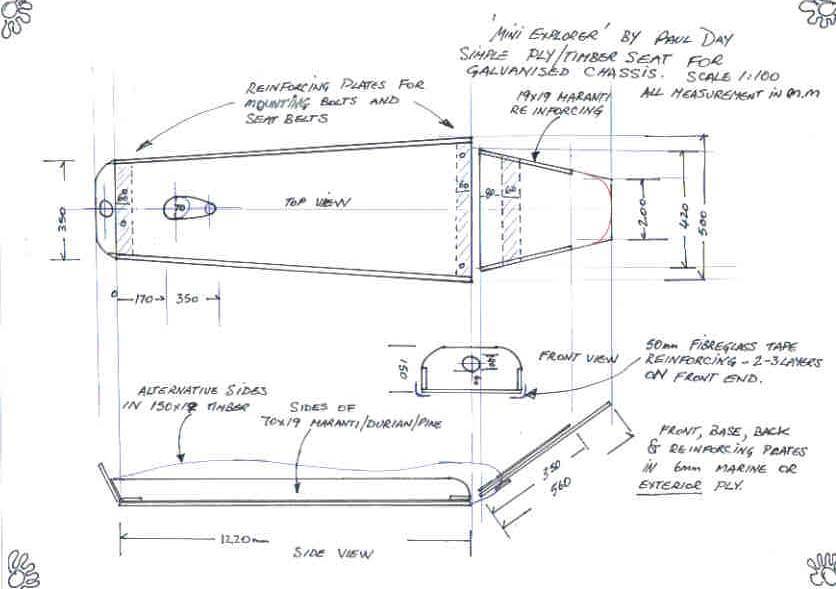 'MINI EXPLORER' BY PAUL DAY
SIMPLE PLY/TIMBER SEAT FOR
GALVANISED CHASSIS. SCALE 1:100
ALL MEASUREMENT IN M.M
REINFORCING PLATES FOR
MOUNTING BOLTS AND
SEAT BELTS
19x19 MARANTI
REINFORCING
350
80
70
TOP VIEW
60
80
60
200
420
500
0
170
350
150
FRONT VIEW
50mm FIBREGLASS TAPE
REINFORCING - 2-3 LAYERS
ON FRONT END.
ALTERNATIVE SIDES
IN 150x19 TIMBER
SIDES OF
70x19 MARANTI/DURIAN/PINE
FRONT, BASE, BACK
& REINFORCING PLATES
IN 6mm MARINE OR
EXTERIOR PLY.
350
560
1220mm
SIDE VIEW